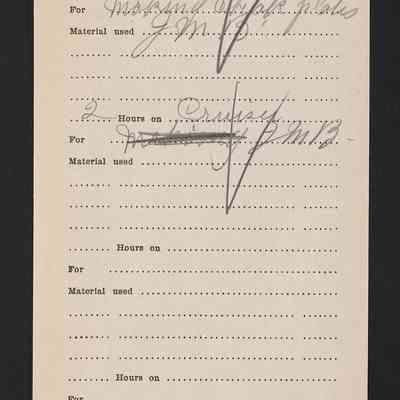 For making break plates
Material used
J M B
2 Hours on Cruiser
For J M B -
Material used
Hours on
For
Material used
Hours on
For